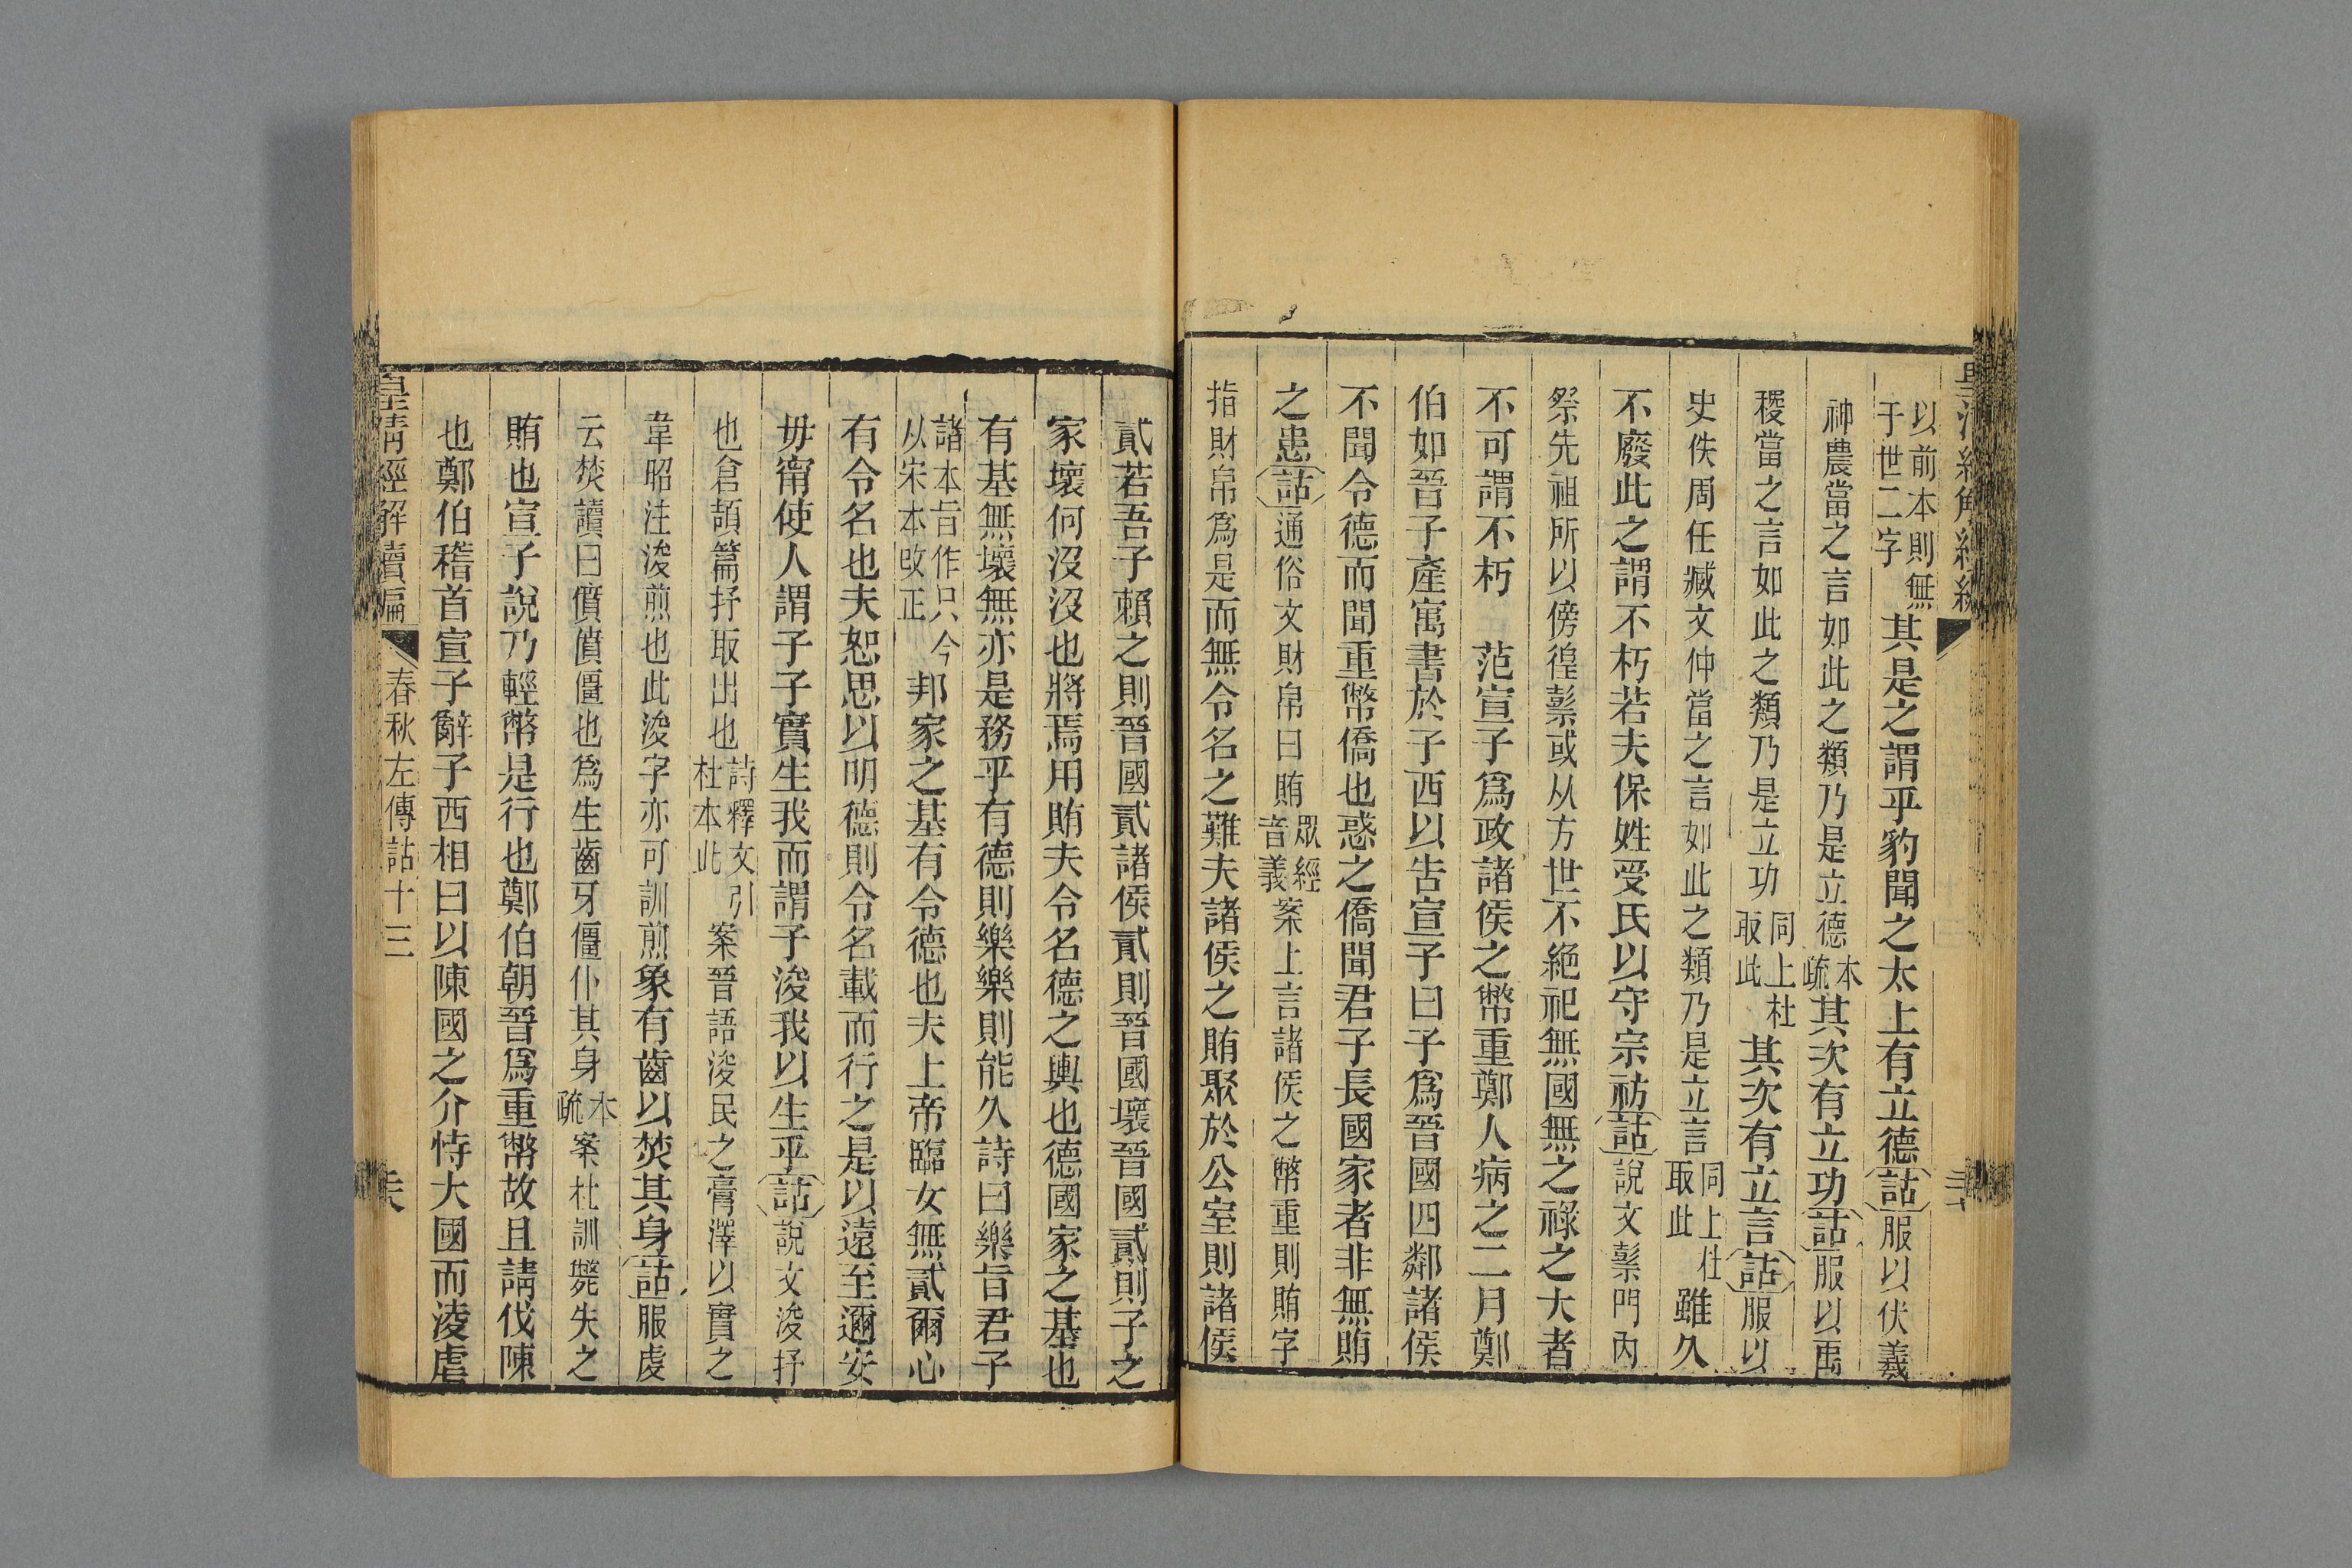 以前本則無于世二字其是之謂乎豹聞之太上有立德詁服以伏羲
神農當之言如此之類乃是立德本疏其次有立功詁服以禹
稷當之言如此之類乃是立功同上杜取此其次有立言詁服以
史佚周任臧文仲當之言如此之類乃是立言同上杜取此雖久
不廢此之謂不朽若夫保姓受氏以守宗祊詁說文䋶門內
祭先祖所以傍徨䋶或从方世不絕祀無國無之祿之大者
不可謂不朽　范宣子爲政諸侯之幣重鄭人病之二月鄭
伯如晉子產寓書於子西以告宣子曰子爲晉國四鄰諸侯
不聞令德而聞重幣僑也惑之僑聞君子長國家者非無賄
之患詁通俗文財帛曰賄眾經音義案上言諸侯之幣重則賄字
指財帛爲是而無令名之難夫諸侯之賄聚於公室則諸侯
貳若吾子賴之則晉國貳諸侯貳則晉國壞晉國貳則子之
家壞何沒沒也將焉用賄夫令名德之輿也德國家之基也
有基無壞無亦是務乎有德則樂樂則能久詩曰樂旨君子
諸本旨作只今以宋本改正邦家之基有令德也夫上帝臨女無貳爾心
有令名也夫恕思以明德則令名載而行之是以遠至邇安
毋甯使人謂子子實生我而謂子浚我以生乎詁說文浚抒
也倉頡篇抒取出也詩釋文引杜本此案晉語浚民之膏澤以實之
韋昭注浚煎也此浚字亦可訓煎象有齒以焚其身詁服虔
云焚讀曰僨僨僵也爲生齒牙僵仆其身本疏案杜訓斃失之
賄也宣子說乃輕幣是行也鄭伯朝晉爲重幣故且請伐陳
也鄭伯稽首宣子辭子西相曰以陳國之介恃大國而淩虐
皇清經解續編　春秋左傳詁十三